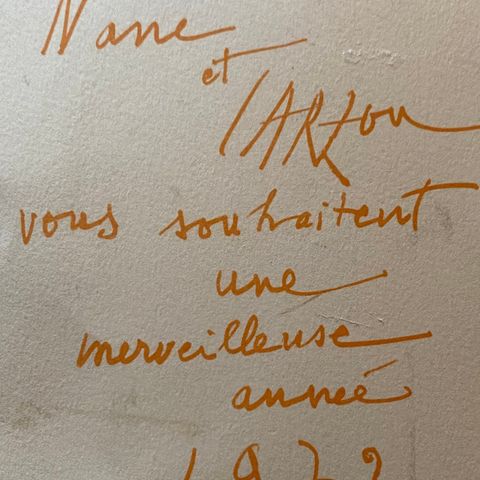 Nane
et
TARZOU
vous souhaitent
une
merveilleuse
année
1972